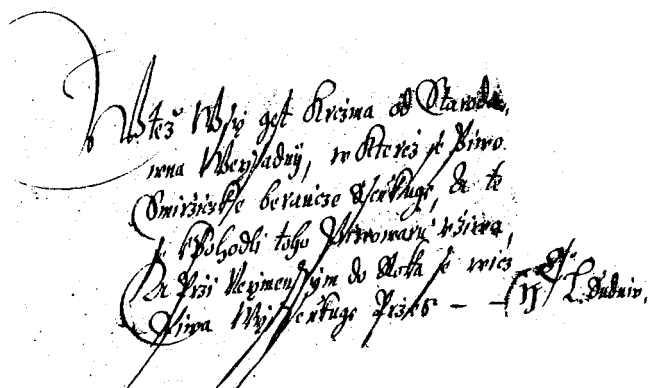 W též Wsy gest Krczma od Starodá,
wna Weysadnij, w kterež se Piwo
Smirziczke beraucze Ssenkuge, a te
k Pohodli toho Piwowaru vžiwa,
A Przi Neymenssym do Roka se wicz
Piwa Wyssenkuge Przes —